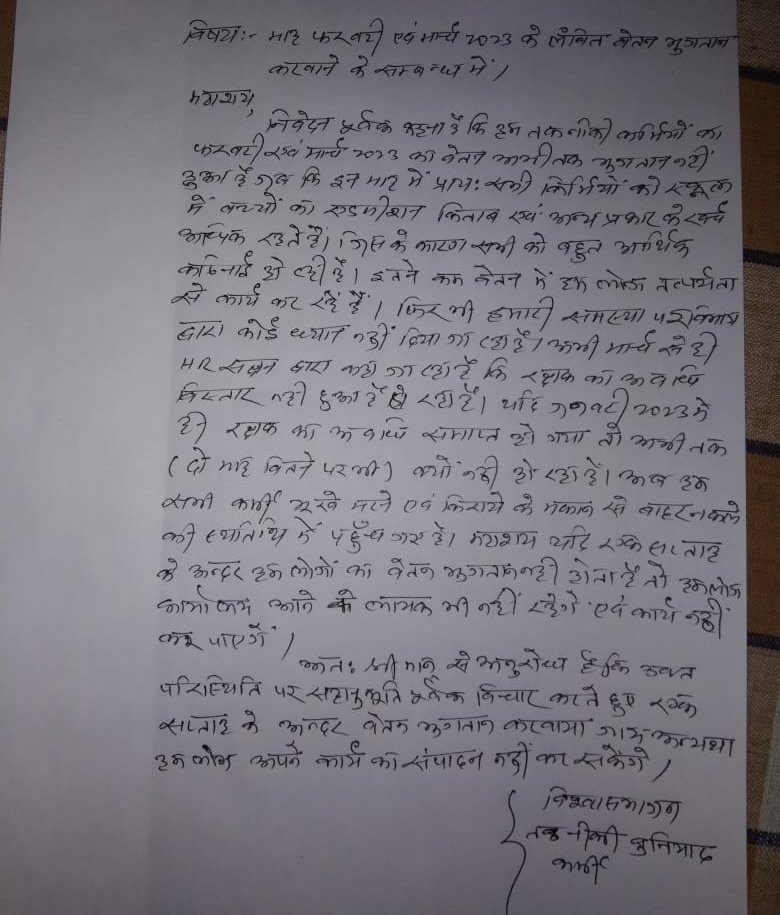 विषय:- माह फरवरी एवं मार्च 2023 के लंबित वेतन भुगतान
करवाने के सम्बन्ध में।
महाशय,
निवेदन पूर्वक कहना है कि हम तकनीकी कर्मियों का
फरवरी एवं मार्च 2023 का वेतन अभी तक भुगतान नहीं
हुआ है जब कि इन माह में प्राय: सभी कर्मियों को स्कूल
में बच्चों का एडमीशन किताब एवं अन्य प्रकार के खर्च
अधिक रहते है। जिस के कारण सभी को बहुत आर्थिक
कठिनाई हो रही है। इतने कम वेतन में हम लोग तत्पर्यता
से कार्य कर रहें हैं। फिर भी हमारी समस्या पर विभाग
द्वारा कोई ध्यान नहीं दिया जा रहा है। अभी मार्च से ही
HR सेक्सन द्वारा कहा जा रहा है कि का अवधि
विस्तार नही हुआ है हो रहा है। यदि जनवरी 2023 में
ही का अवधि समाप्त हो गया तो अभी तक
(दो माह बितने पर भी) क्यों नही हो रहा है। अब हम
सभी कर्मी भूखे मरने एवं किराये के मकान से बाहर निकलने
की स्थितिथि में पहुँच गए है। महाशय यदि एक सप्ताह
के अन्दर हम लोगों का वेतन भुगतान नही होता है तो हमलोग
कार्यालय आने के लायक भी नहीं रहेगें एवं कार्य नहीं
कर पाएगें।
अत: श्रीमान् से अनुरोध है कि उक्त
परिस्थिति पर सहानुभूति पूर्वक विचार करते हुए एक
सप्ताह के अन्दर वेतन भुगतान करवाया जाय अन्यथा
हम लोग अपने कार्य का संपादन नहीं कर सकेंगे।
विश्वासभाजन
तकनीकी बुनियाद
कर्मी